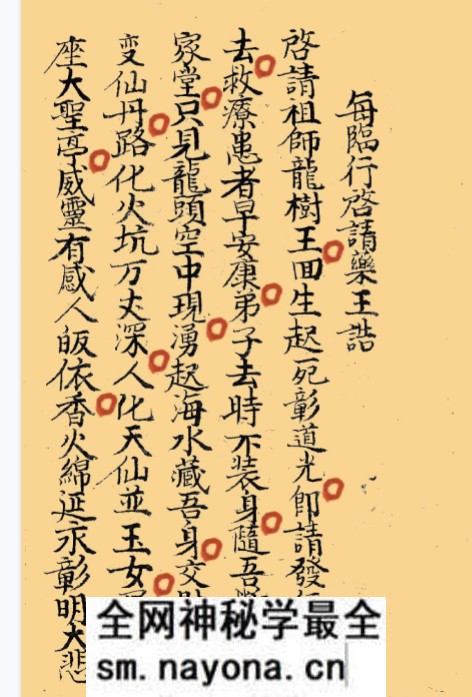 每臨行啓請藥王誥
啓請祖師龍樹王囬生起死彰道光即請發
去救療患者早安康弟子去時不装身隨吾
家堂只見龍頭空中現湧起海水藏吾身交
变仙丹路化火坑万丈深人化天仙並玉女
座大聖亭威靈有感人皈依香火綿延永彰明大悲
全网神秘学最全
sm.nayona.cn